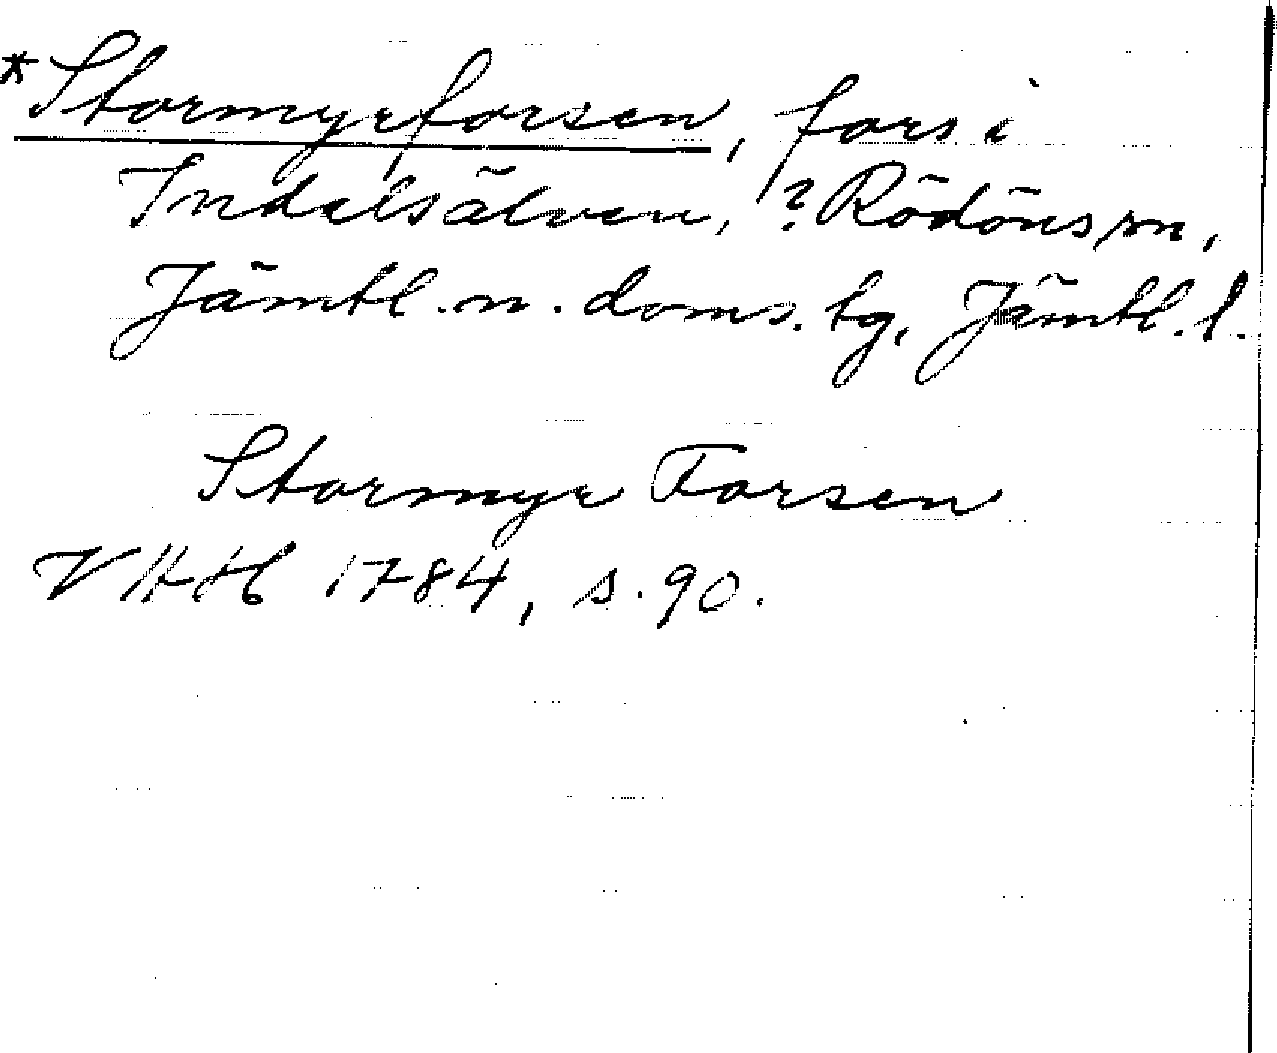 *Stormyrforsen, fors i
Indalsälven, ? Rödöns sn,
Jämtl. n. doms. tg, Jämtl. l.
Stormyr Forsen
VHAH 1784, s. 90.